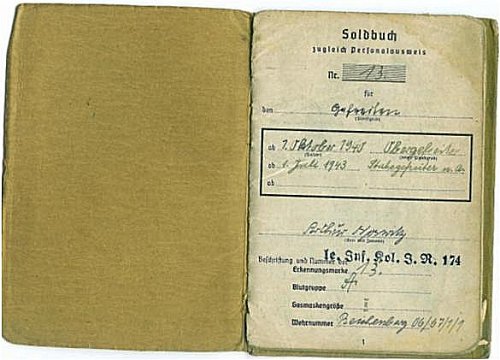 Soldbuch
zugleich Personalausweis
Nr. 13
für
den Gefreiten
(Dienstgrad)
ab 1. Oktober 1940 Obergefreiter
(Datum) (neuer Dienstgrad)
ab 1. Juli 1943 Stabsgefreiter
ab
Arthur
(Vor- und Zuname)
le. Inf. Kol. J. R. 174
Beschriftung und Nummer der
Erkennungsmarke 13.
Blutgruppe A
Gasmaskengröße II
Wehrnummer Reichenberg 06/37/1/1
1